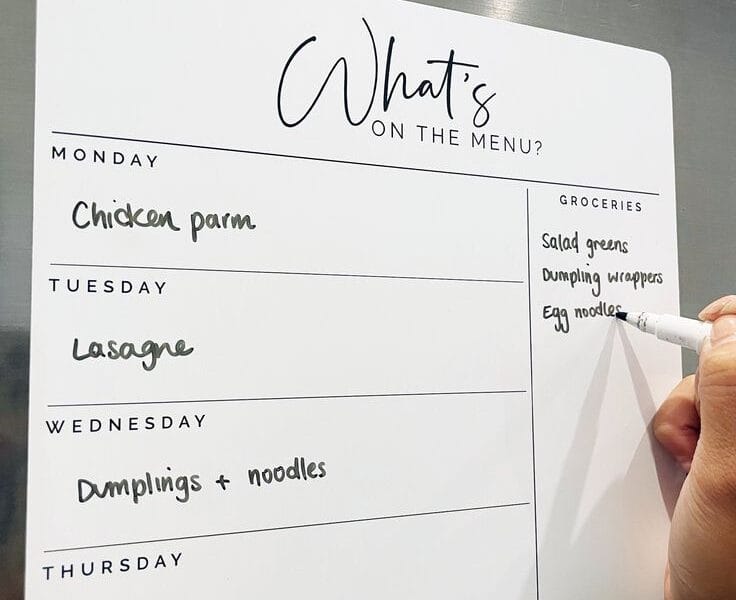 What's
ON THE MENU?
MONDAY
Chicken parm
TUESDAY
Lasagne
WEDNESDAY
Dumplings + noodles
THURSDAY
GROCERIES
Salad greens
Dumpling wrappers
Egg noodles